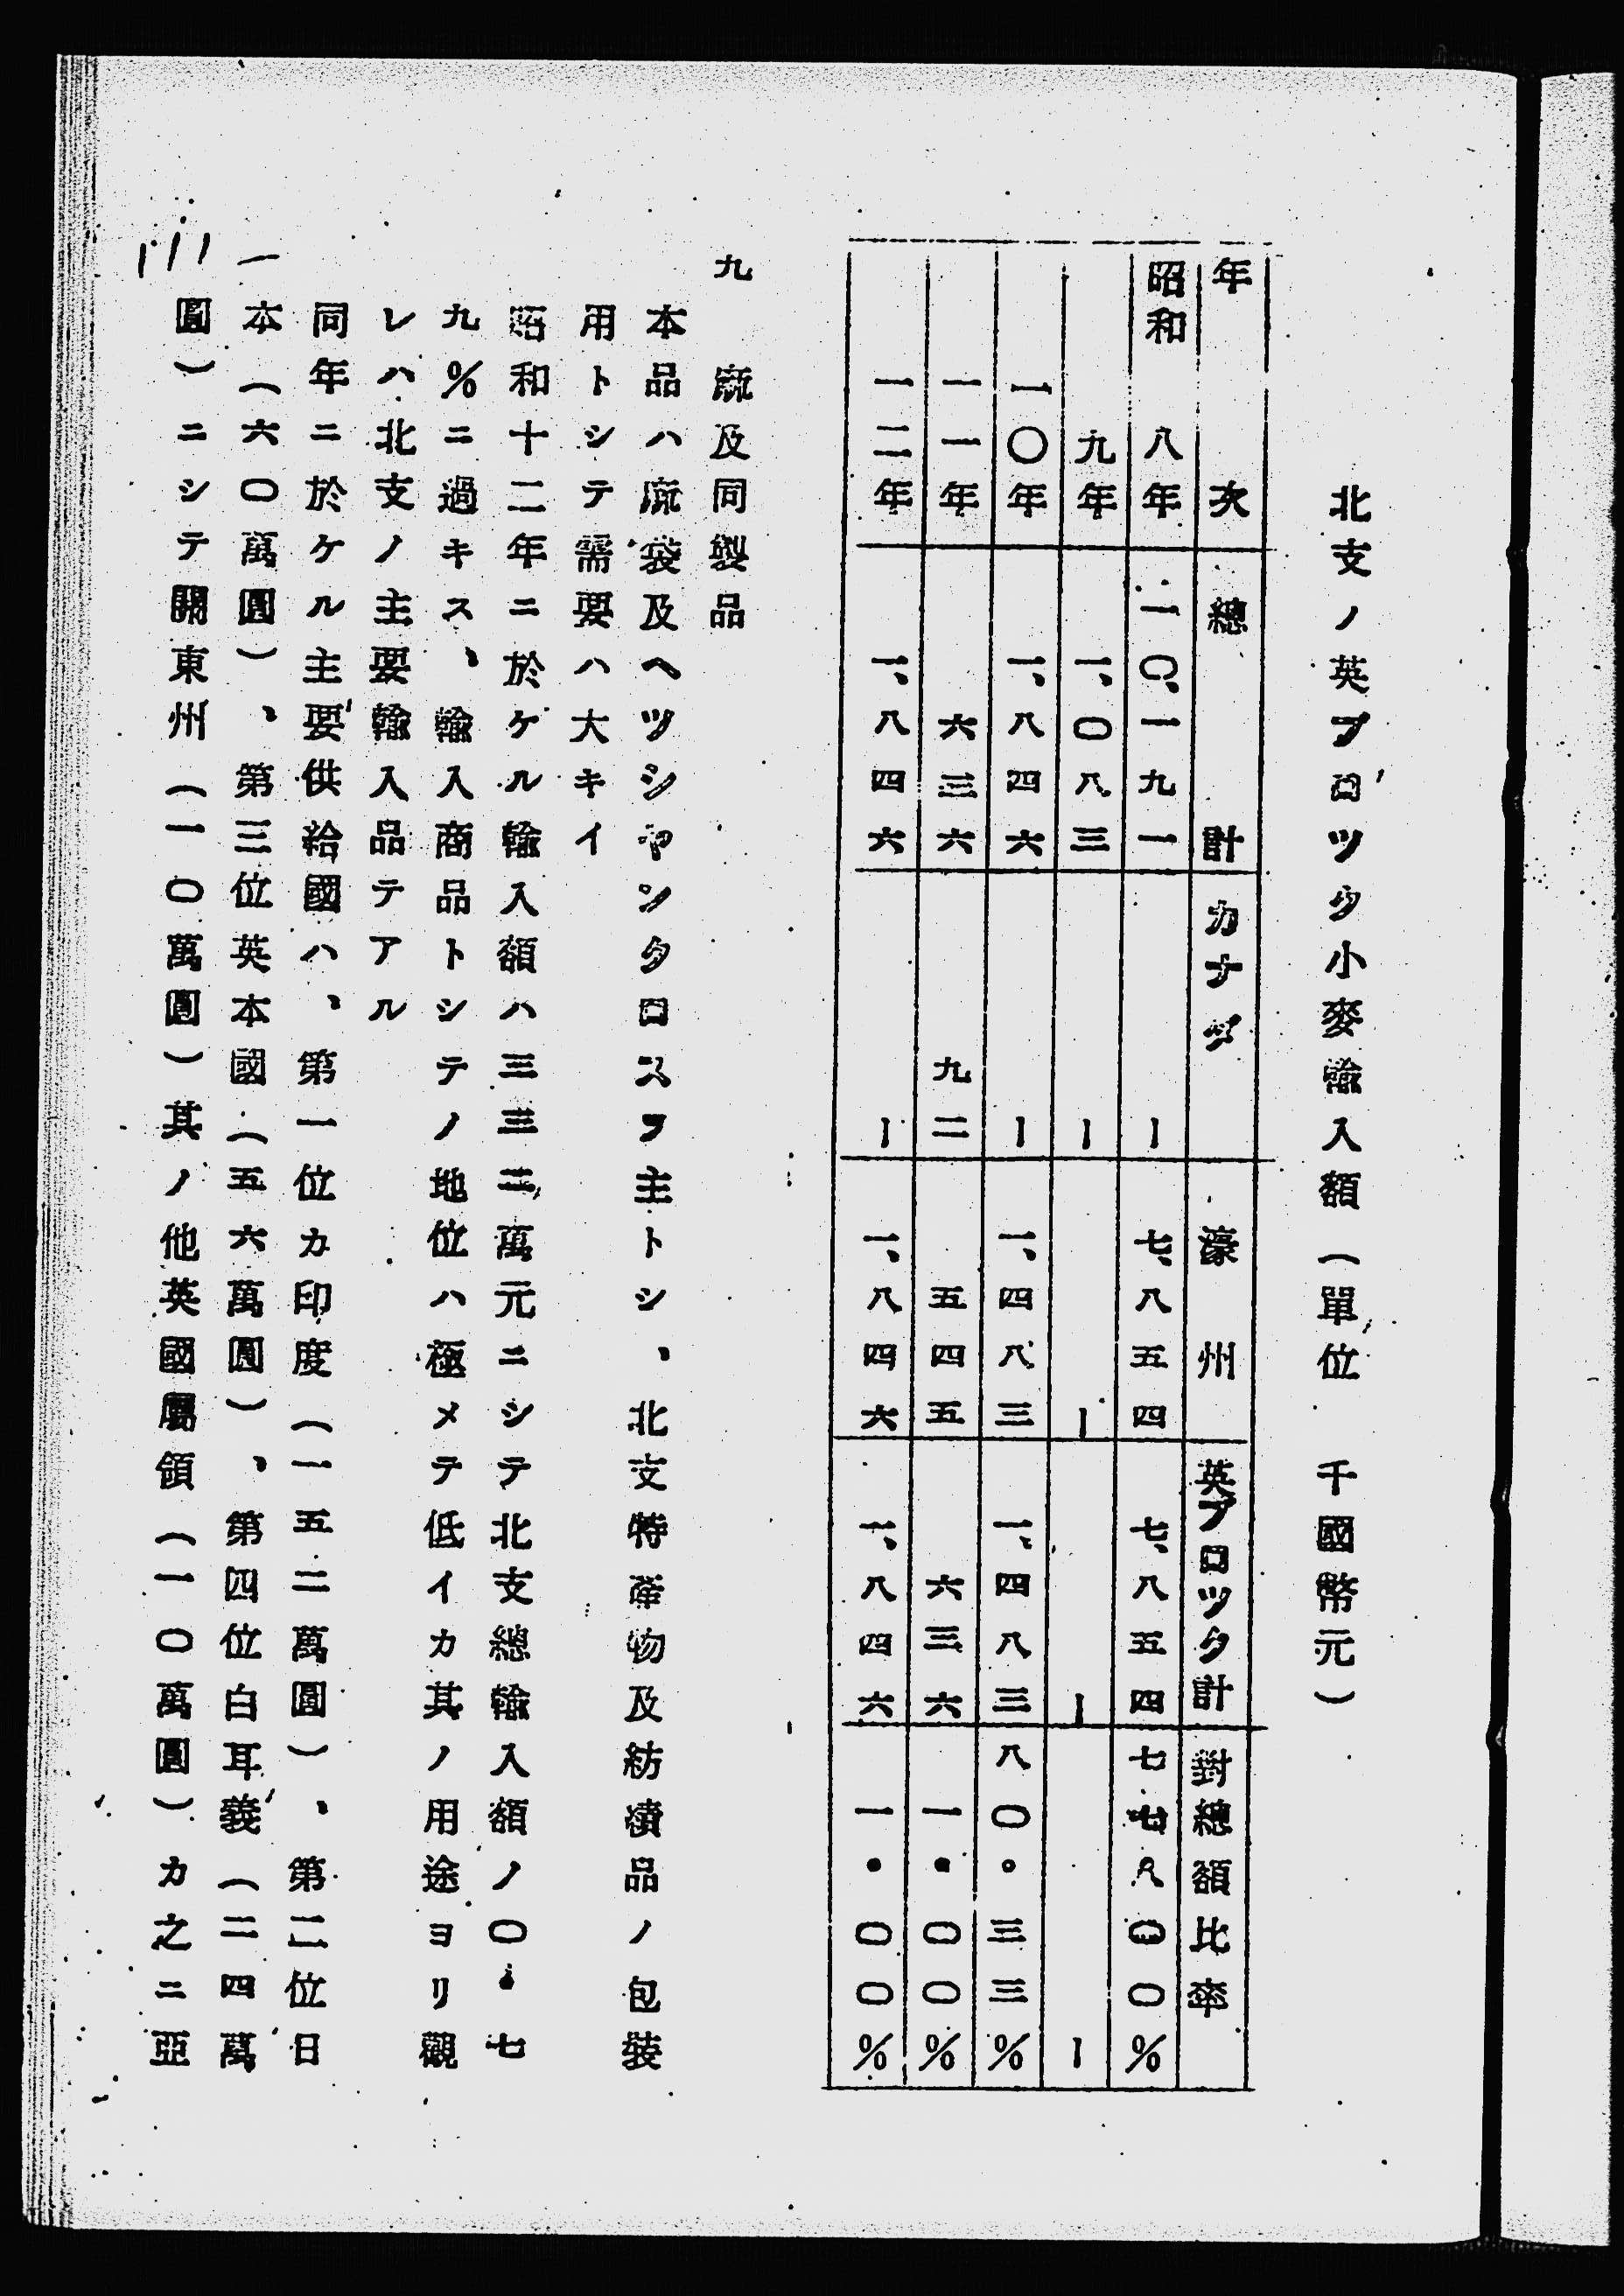 北支ノ英ブロツク小麥輸入額（單位　千國幣元）
年次　總計　カナダ　濠州　英ブロツク計　對總額比率
昭和八年　一〇、一九一　｜　七、八五四　七、八五四　七七八〇〇％
九年　一、〇八三　｜　｜　｜　｜
一〇年　一、八四六　｜　一、四八三　一、四八三　八〇。三三％
一一年　六三六　九二　五四五　六三六　一・〇〇％
一二年　一、八四六　｜　一、八四六　一、八四六　一・〇〇％
九　蔴及同製品
本品ハ蔴袋及ヘツシヤンクロスヲ主トシ、北支特產物及紡績品ノ包裝
用トシテ需要ハ大キイ
昭和十二年ニ於ケル輸入額ハ三三二萬元ニシテ北支總輸入額ノ〇・七
九％ニ過キス、輸入商品トシテノ地位ハ極メテ低イカ其ノ用途ヨリ觀
レハ北支ノ主要輸入品テアル
同年ニ於ケル主要供給國ハ、第一位カ印度（一五二萬圓）、第二位日
本（六〇萬圓）、第三位英本國（五六萬圓）、第四位白耳義（二四萬
圓）ニシテ關東州（一〇萬圓）其ノ他英國屬領（一〇萬圓）カ之ニ亞
一
111